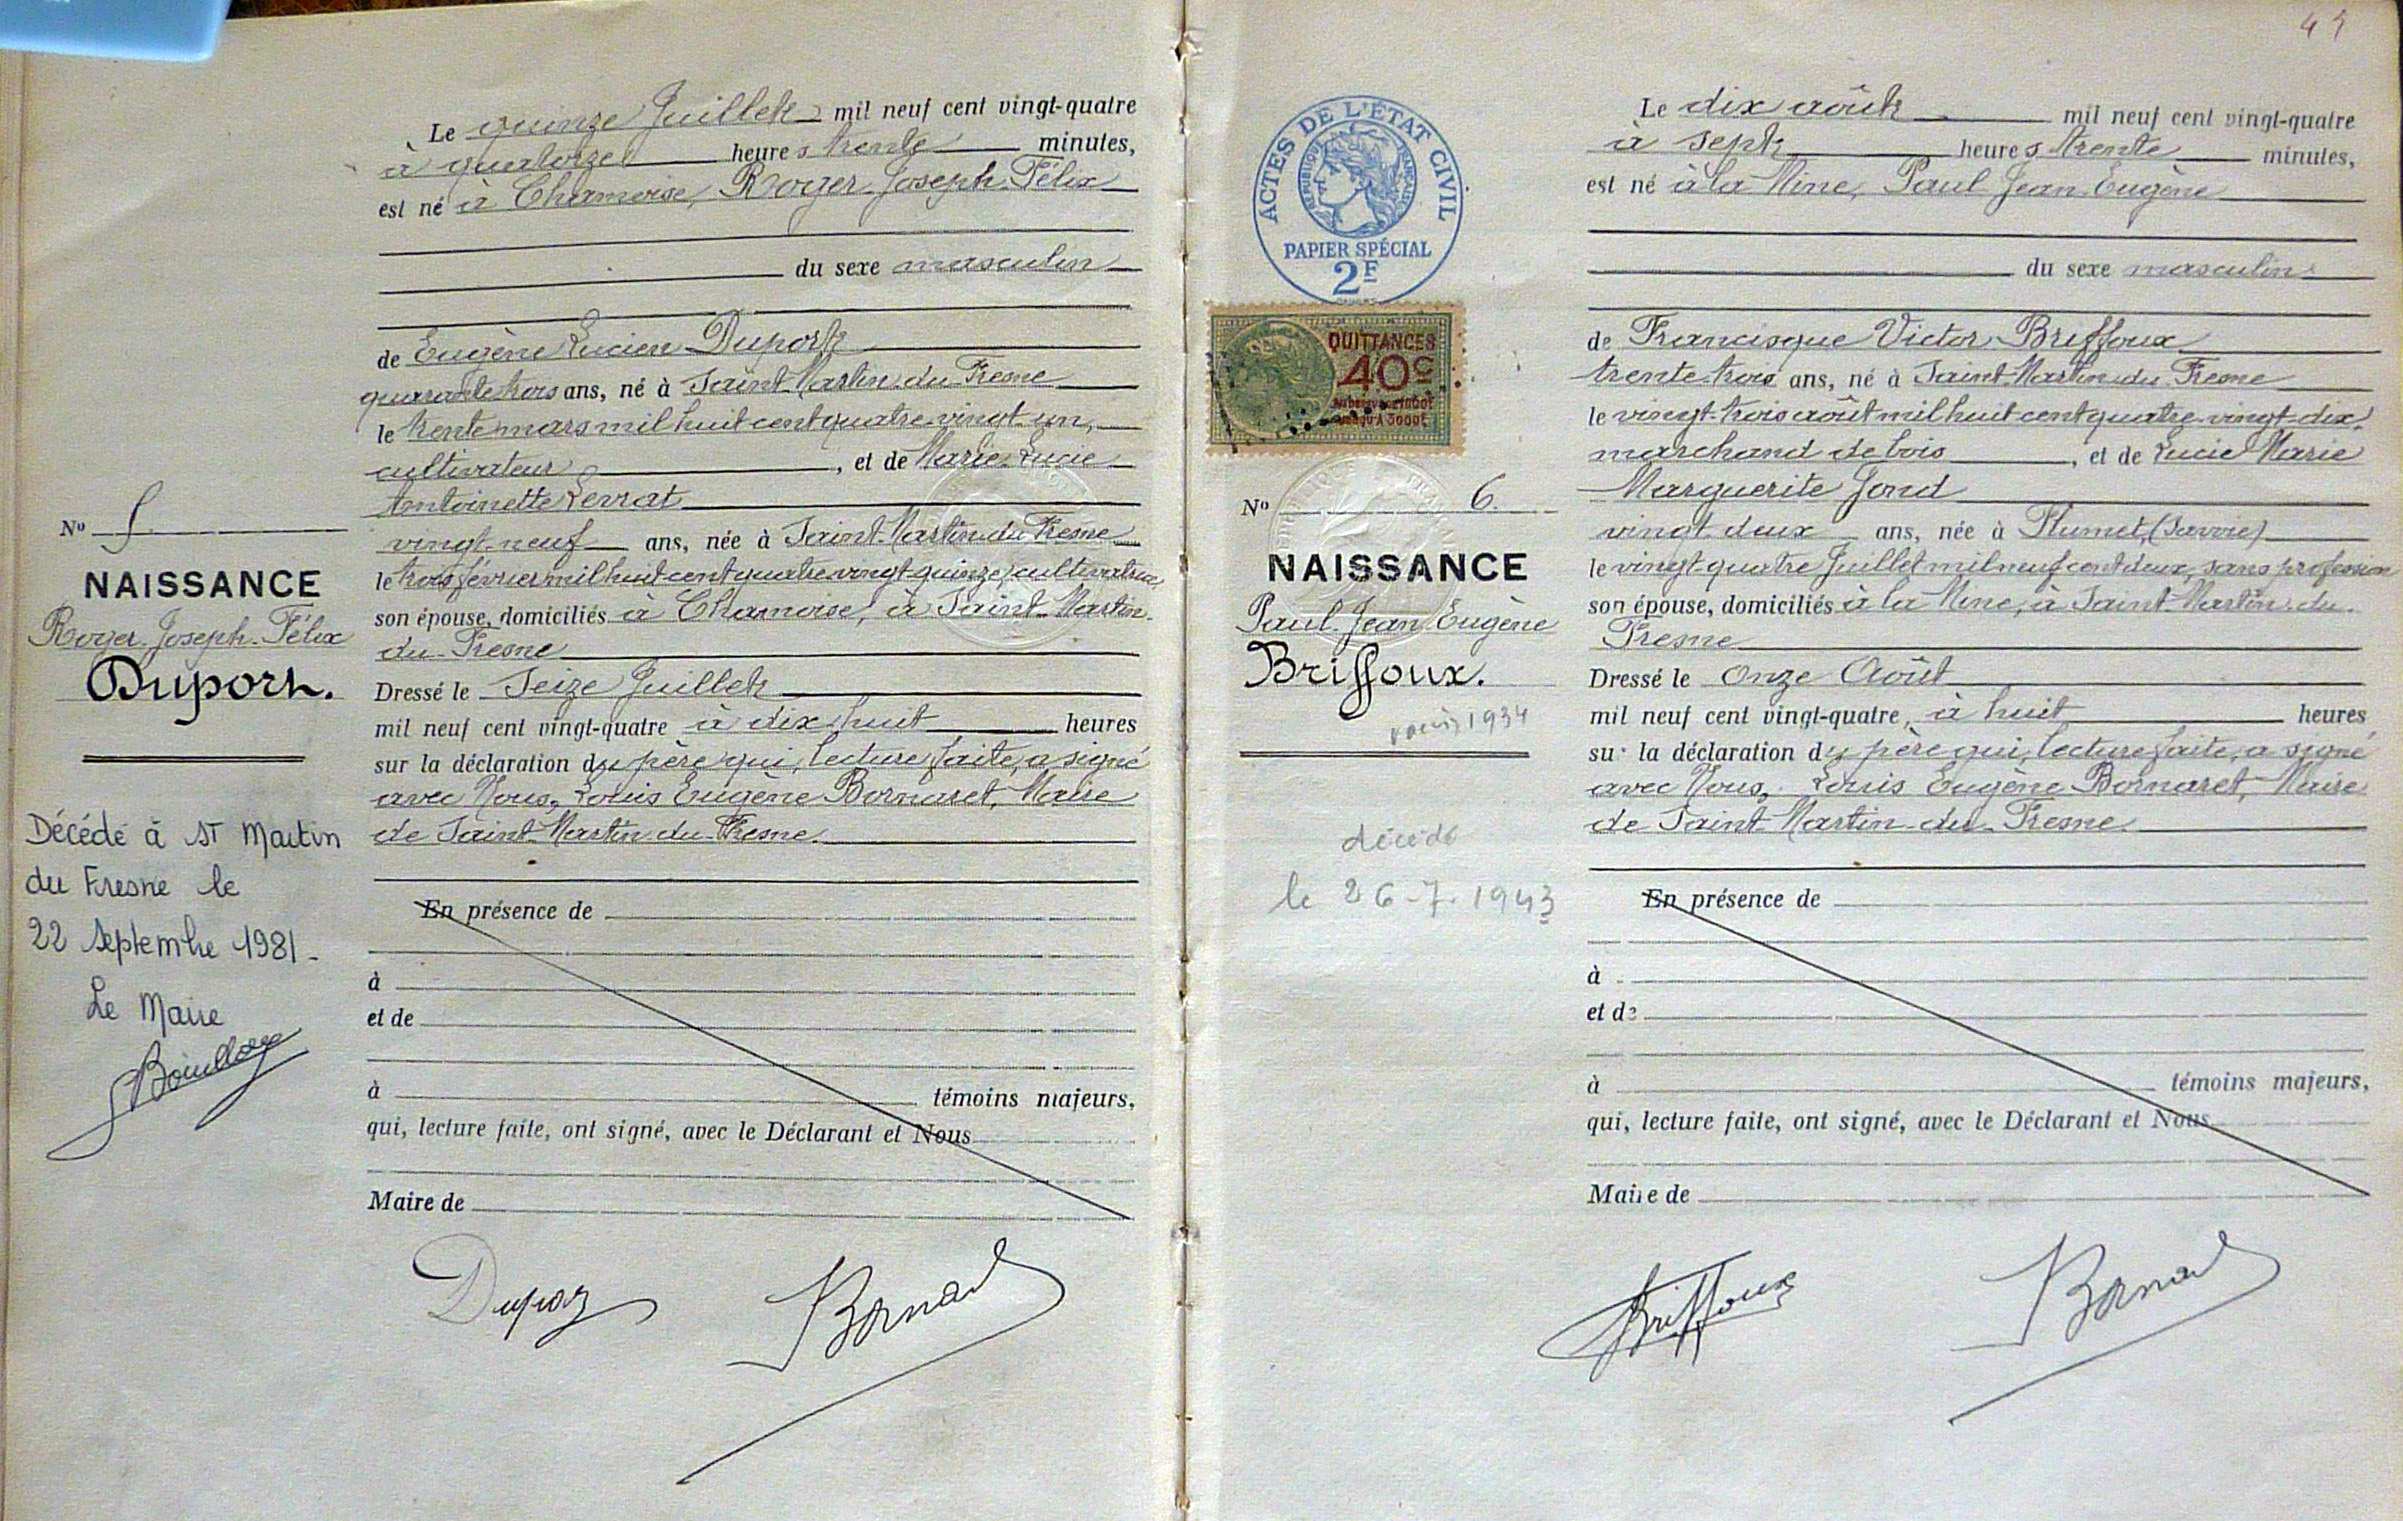 Le quinze Juillet mil neuf cent vingt-quatre
à quatorze heures trente minutes,
est né à Chamoise, Roger Joseph Félix
du sexe masculin
de Eugène Lucien Duport
quarante trois ans, né à Saint-Martin-du-Fresne
le trente mars mil huit cent quatre-vingt-un,
cultivateur, et de Marie Lucie
Antoinette Levrat
vingt-neuf ans, née à Saint-Martin du Fresne
le trois février mil huit cent quatre vingt quinze, cultivatrice
son épouse, domiciliés à Chamoise, à Saint-Martin-
du-Fresne
Dressé le Seize Juillet
mil neuf cent vingt-quatre à dix huit heures
sur la déclaration du père qui, lecture faite, a signé
avec Nous, Louis Eugène Bornaret, Maire
de Saint-Martin-du-Fresne.
En présence de
à
et de
à témoins majeurs,
qui, lecture faite, ont signé, avec le Déclarant et Nous
Maire de
Duport Bornaret
No 5
NAISSANCE
Roger Joseph Félix
Duport.
Décédé à St Martin
du Fresne le
22 septembre 1981-
Le Maire
45
ACTES DE L'ÉTAT CIVIL
RÉPUBLIQUE FRANÇAISE
PAPIER SPÉCIAL
2F
QUITTANCES
40c
No 6.
NAISSANCE
Paul Jean Eugène
Briffoux.
1934
décédé
le 26-7-1943
Le dix août mil neuf cent vingt-quatre
à sept heures trente minutes,
est né à la Mine, Paul Jean Eugène
du sexe masculin
de Francisque Victor Briffoux
trente-trois ans, né à Saint-Martin-du-Fresne
le vingt-trois août mil huit cent quatre-vingt-dix,
marchand de bois, et de Lucie Marie
Marguerite Jond
vingt-deux ans, née à Flumet, (Savoie)
le vingt-quatre Juillet mil neuf cent deux, sans profession
son épouse, domiciliés à la Mine, à Saint-Martin-du-
Fresne
Dressé le Onze Août
mil neuf cent vingt-quatre, à huit heures
sur la déclaration du père qui, lecture faite, a signé
avec Nous, Louis Eugène Bornaret, Maire
de Saint-Martin-du-Fresne
En présence de
à
et de
à témoins majeurs,
qui, lecture faite, ont signé, avec le Déclarant et Nous
Maire de
Briffoux Bornaret